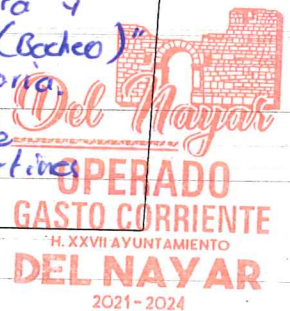 ra y
(Bacheo)"
oria.
Del Nayar
e
rtines
OPERADO
GASTO CORRIENTE
H. XXVII AYUNTAMIENTO
DEL NAYAR
2021-2024